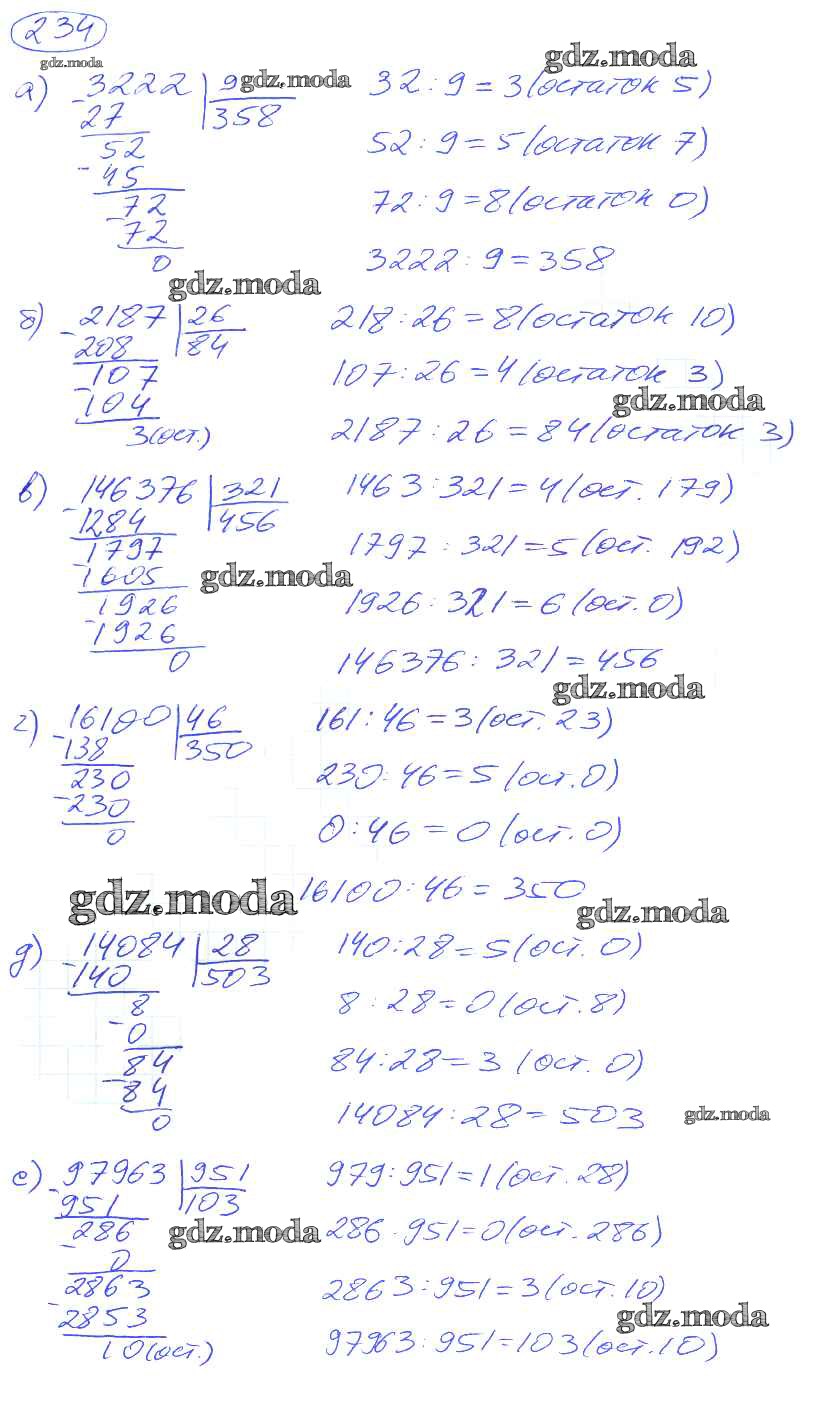 234
gdz.moda
gdz.moda
а) 3222 9 gdz.moda 32 : 9 = 3 (остаток 5)
- 27 358
52 52 : 9 = 5 (остаток 7)
- 45
72 72 : 9 = 8 (остаток 0)
- 72
0 3222 : 9 = 358
gdz.moda
б) - 2187 26 218 : 26 = 8 (остаток 10)
208 84
107 107 : 26 = 4 (остаток 3)
- 104 gdz.moda
3 (ост.) 2187 : 26 = 84 (остаток 3)
в) - 146376 321 1463 : 321 = 4 (ост. 179)
1284 456
1797 1797 : 321 = 5 (ост. 192)
- 1605 gdz.moda
1926 1926 : 321 = 6 (ост. 0)
- 1926
0 146376 : 321 = 456
gdz.moda
г) - 16100 46 161 : 46 = 3 (ост. 23)
138 350
230 230 : 46 = 5 (ост. 0)
- 230
0 0 : 46 = 0 (ост. 0)
gdz.moda 16100 : 46 = 350
gdz.moda
д) - 14084 28 140 : 28 = 5 (ост. 0)
140 503
8 8 : 28 = 0 (ост. 8)
- 0
84 84 : 28 = 3 (ост. 0)
- 84
0 14084 : 28 = 503 gdz.moda
е) - 97963 951 979 : 951 = 1 (ост. 28)
951 103
286 gdz.moda 286 : 951 = 0 (ост. 286)
- 0
2863 2863 : 951 = 3 (ост. 10)
- 2853 gdz.moda
10 (ост.) 97963 : 951 = 103 (ост. 10)